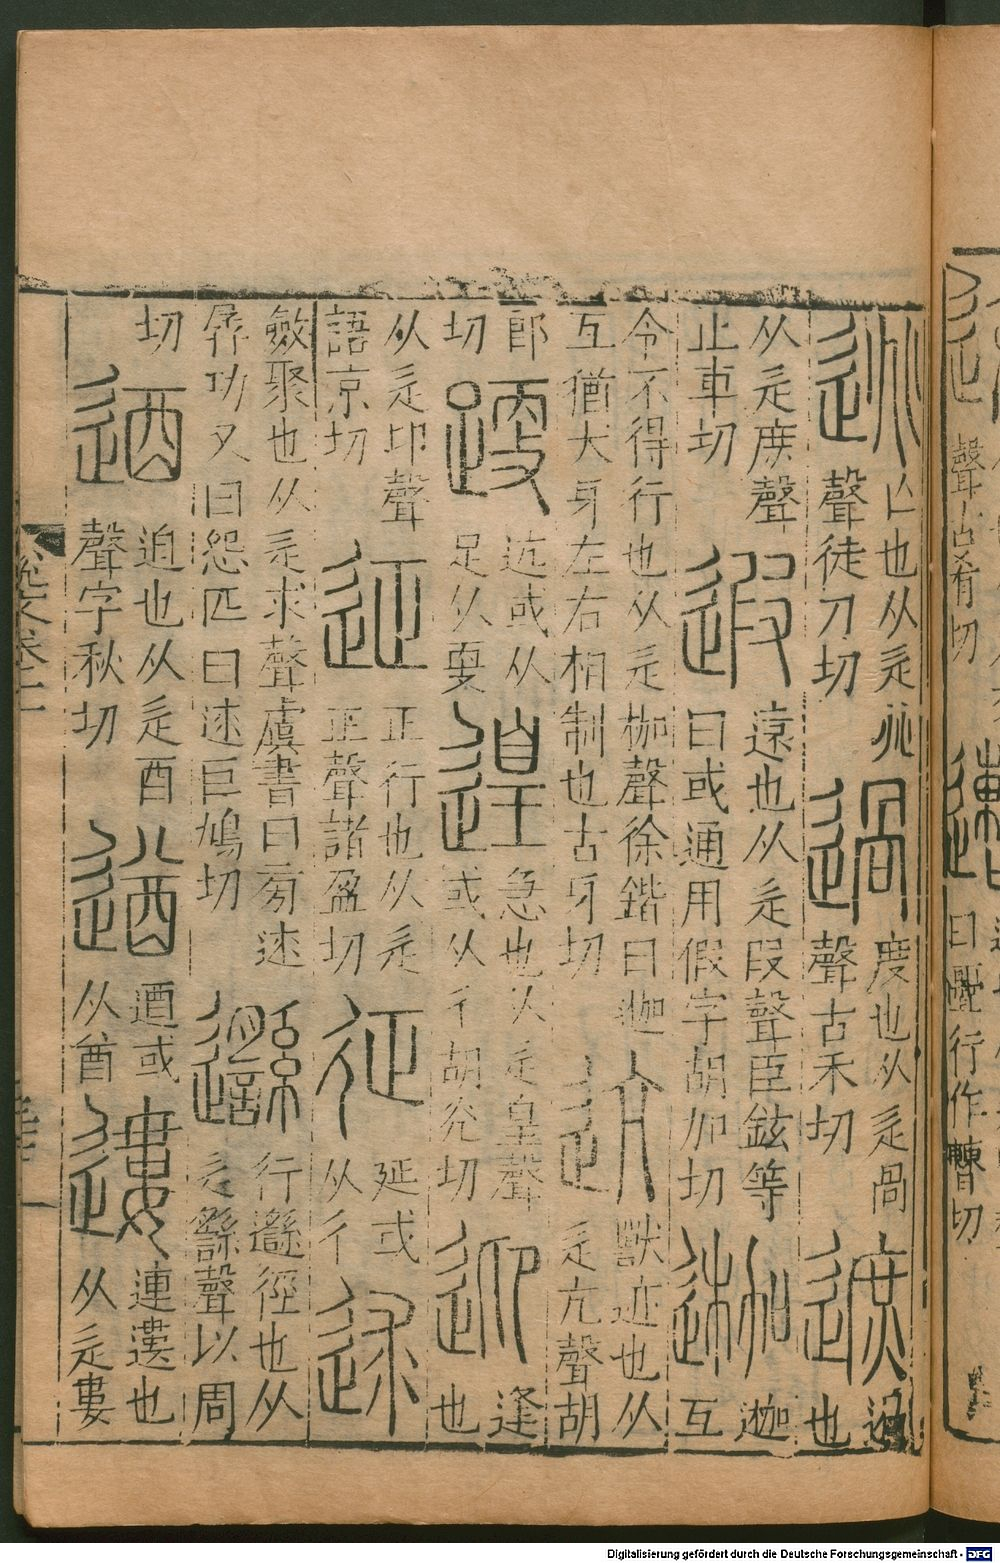 聲古肴切
逃
亡也从辵兆
聲徒刀切
過
度也从辵咼
聲古禾切
遮
遏
也
从辵庶聲
止車切
遐
遠也从辵叚聲臣鉉等
曰或通用假字胡加切
𨒪
𨒪
互
令不得行也从辵枷聲徐鍇曰𨒪
互猶犬牙左右相制也古牙切
迒
獸迹也从
辵亢聲胡
郎
切
𨁈
迒或从
足从更
遑
急也从辵皇聲
或从彳胡光切
迎
逢
也
从辵卬聲
語京切
延
正行也从辵
正聲諸盈切
征
延或
从彳
逑
斂聚也从辵求聲虞書曰旁逑
孱功又曰怨匹曰逑巨鳩切
邎
行邎徑也从
辵繇聲以周
切
逎
迫也从辵酉
聲字秋切
遒
逎或
从酋
遱
連遱也
从辵婁
Digitalisierung gefördert durch die Deutsche Forschungsgemeinschaft - DFG